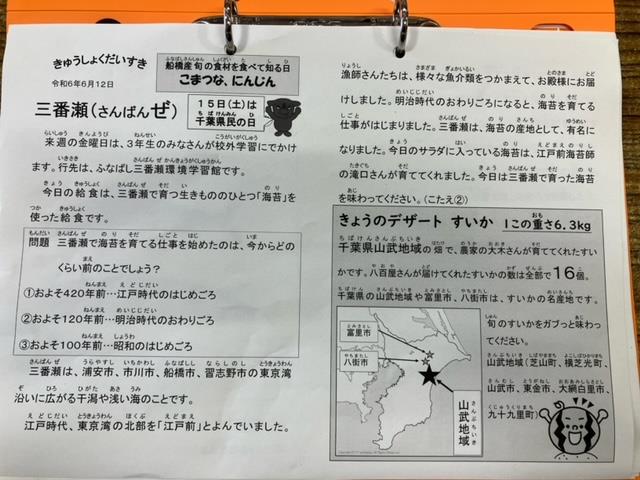 きゅうしょくだいすき
令和6年6月12日
船橋産旬の食材を食べて知る日
こまつな、にんじん
三番瀬(さんばんぜ)
15日(土)は
千葉県民の日
来週の金曜日は、3年生のみなさんが校外学習にでかけ
ます。行先は、ふなばし三番瀬環境学習館です。
今日の給食は、三番瀬で育つ生きもののひとつ「海苔」を
使った給食です。
問題 三番瀬で海苔を育てる仕事を始めたのは、今からどの
くらい前のことでしょう?
①およそ420年前…江戸時代のはじめごろ
②およそ120年前…明治時代のおわりごろ
③およそ100年前…昭和のはじめごろ
三番瀬は、浦安市、市川市、船橋市、習志野市の東京湾
沿いに広がる干潟や浅い海のことです。
江戸時代、東京湾の北部を「江戸前」とよんでいました。
漁師さんたちは、様々な魚介類をつかまえて、お殿様にお届
けしました。明治時代のおわりごろになると、海苔を育てる
仕事がはじまりました。三番瀬は、海苔の産地として、有名に
なりました。今日のサラダに入っている海苔は、江戸前海苔師
の滝口さんが育ててくれました。今日は三番瀬で育った海苔
を味わってください。(こたえ②)
きょうのデザート すいか 1この重さ6.3kg
千葉県山武地域の畑で、農家の大木さんが育ててくれたすい
かです。八百屋さんが届けてくれたすいかの数は全部で16個。
千葉県の山武地域や富里市、八街市は、すいかの名産地です。
富里市
八街市
山武地域
旬のすいかをガブっと味わっ
てください。
山武地域(芝山町、横芝光町、
山武市、東金市、大網白里市、
九十九里町)